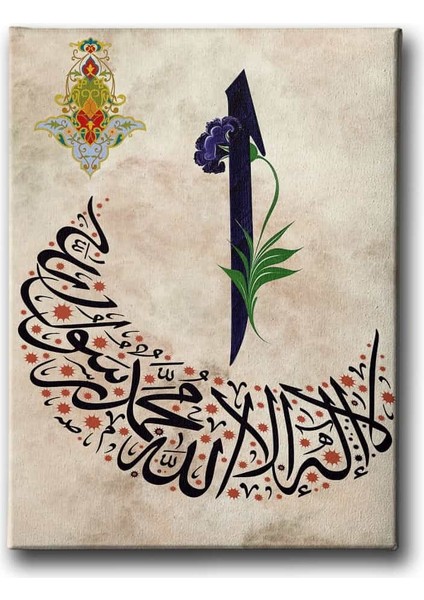 ا
لا إله إلا الله محمد رسول الله